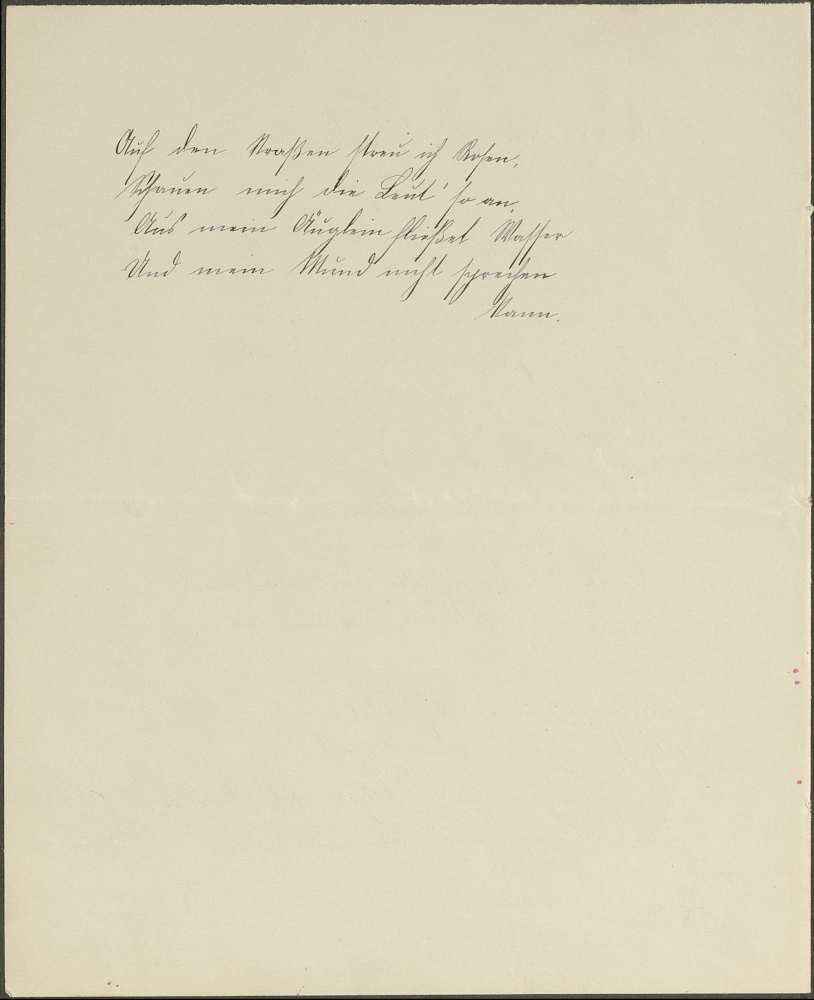 Auf den Straßen streu ich Rosen,
Schauen mich die Leut' so an,
Aus mein Äuglein fließet Wasser
Und mein Mund nicht sprechen
kann.